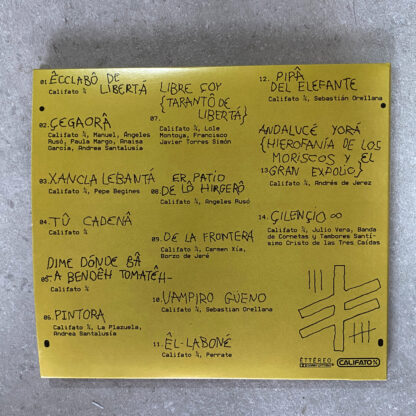 01. ÊCCLABÔ DE LIBERTÁ
Califato ¾
02. ÇEGAORÂ
Califato ¾, Manuel, Ángeles
Rusó, Paula Margo, Anaisa
García, Andrea Santalusía
03. XANCLA LEBANTÁ
Califato ¾, Pepe Begines
04. TÛ CADENÂ
Califato ¾
05. DIME DÓNDE BÂ
A BENDÊH TOMATÊH
Califato ¾
06. PINTORA
Califato ¾, La Plazuela,
Andrea Santalusía
LIBRE SOY
{TARANTÔ DE
07. LIBERTÁ}
Califato ¾, Lole
Montoya, Francisco
Javier Torres Simón
ER PATIO
08. DE LÔ HIRGERÔ
Califato ¾, Ángeles Rusó
09. DE LA FRONTERA
Califato ¾, Carmen Xía,
Borzo de Jeré
10. VAMPIRO GÜENO
Califato ¾, Sebastian Orellana
11. ÊL-LABONÉ
Califato ¾, Perrate
12. PIPÂ
DEL ELEFANTE
Califato ¾, Sebastián Orellana
ANDALUCÉ YORÁ
{HIEROFANÍA DE LOS
MORISCOS Y ÊL
13 GRAN EXPOLIO}
Califato ¾, Andrés de Jerez
14. ÇILENÇIO ∞
Califato ¾, Julio Vera, Banda
de Cornetas y Tambores Santí-
simo Cristo de las Tres Caídas
ÉTTÉREO
CALIFATO ¾